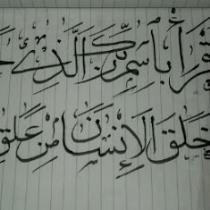 قرأ باسم ربك الذي خ
خلق الإنسان من علق